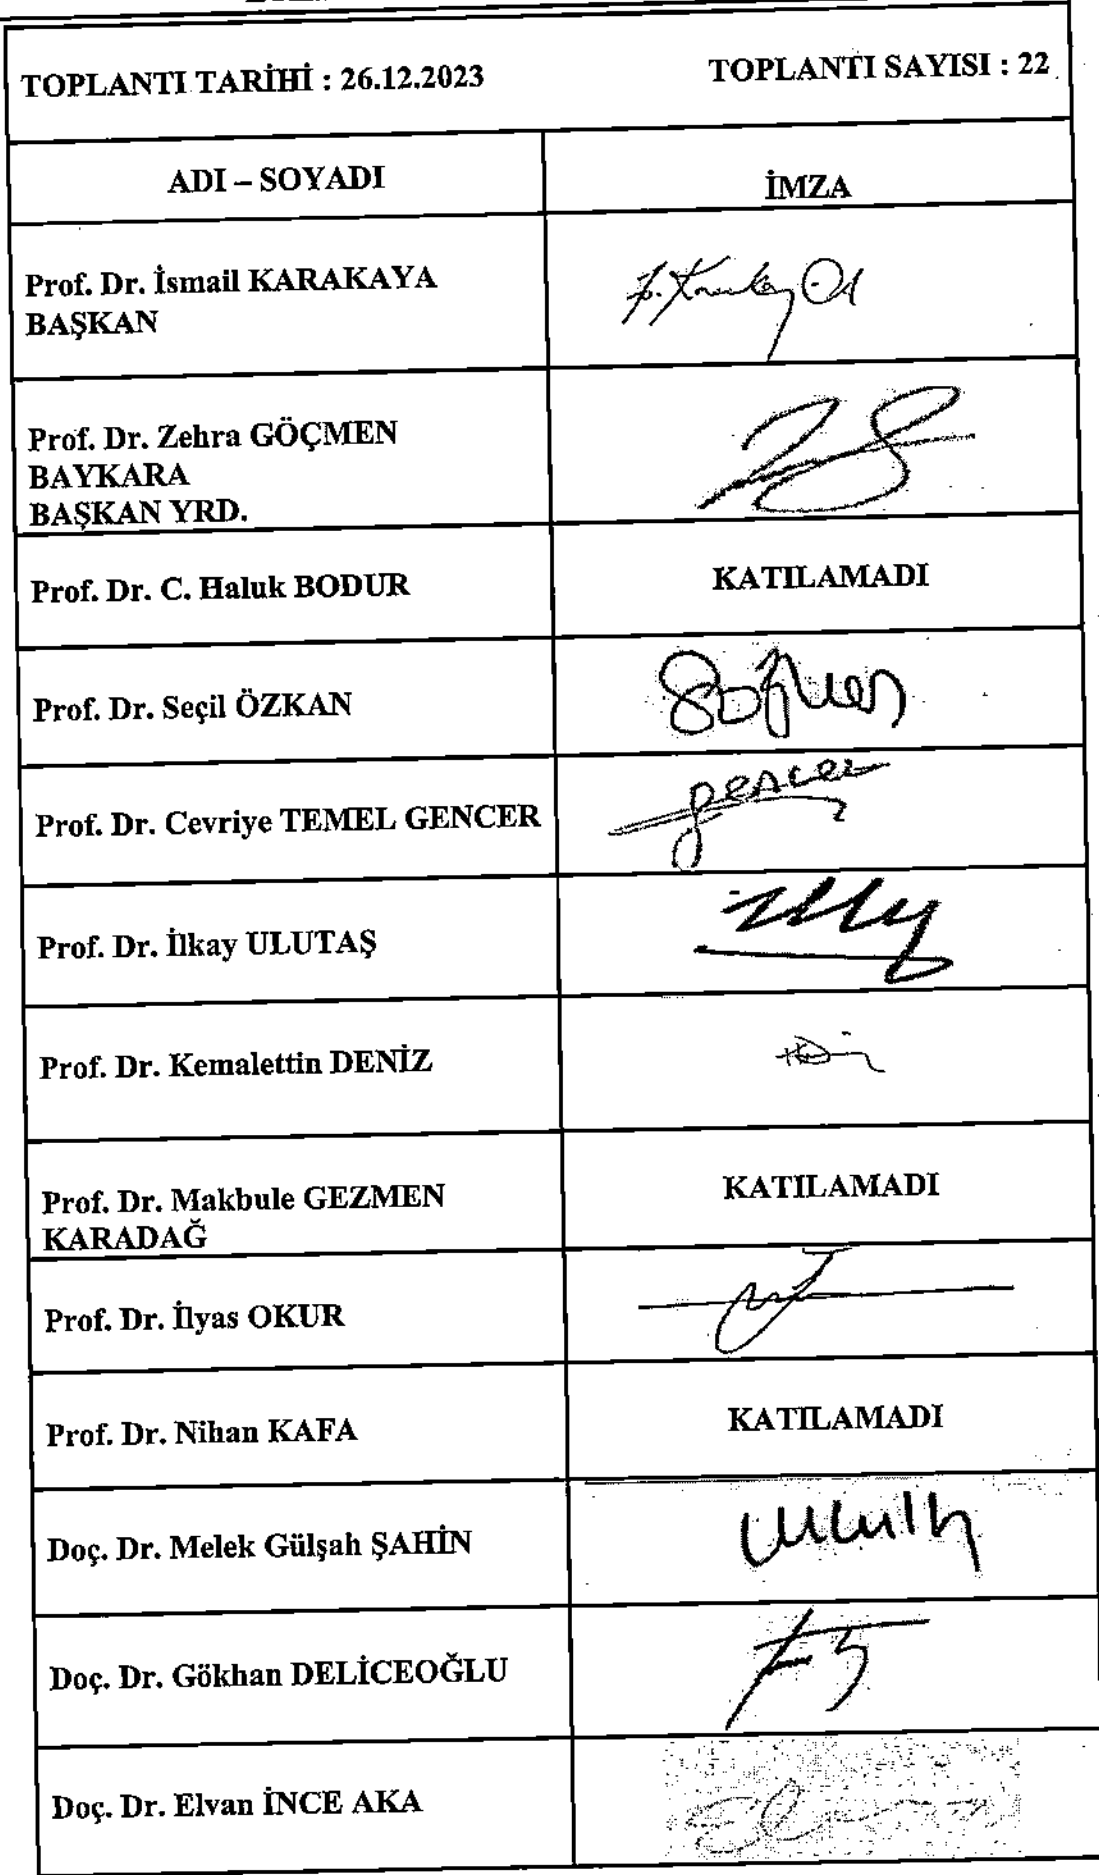 TOPLANTI TARİHİ : 26.12.2023 TOPLANTI SAYISI : 22
ADI – SOYADI İMZA
Prof. Dr. İsmail KARAKAYA
BAŞKAN
Prof. Dr. Zehra GÖÇMEN
BAYKARA
BAŞKAN YRD.
Prof. Dr. C. Haluk BODUR KATILAMADI
Prof. Dr. Seçil ÖZKAN
Prof. Dr. Cevriye TEMEL GENCER gencer
Prof. Dr. İlkay ULUTAŞ
Prof. Dr. Kemalettin DENİZ
Prof. Dr. Makbule GEZMEN KATILAMADI
KARADAĞ
Prof. Dr. İlyas OKUR
Prof. Dr. Nihan KAFA KATILAMADI
Doç. Dr. Melek Gülşah ŞAHİN
Doç. Dr. Gökhan DELİCEOĞLU
Doç. Dr. Elvan İNCE AKA